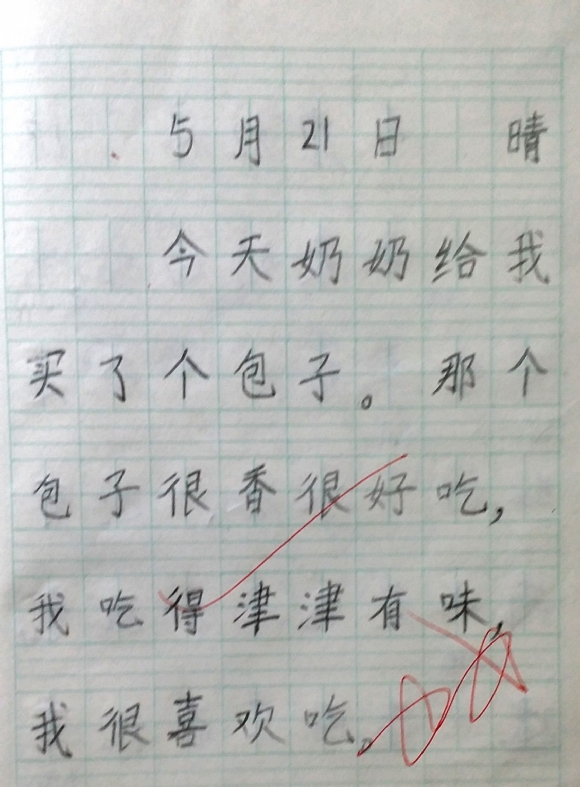 5月21日 晴
今天奶奶给我
买了个包子。那个
包子很香很好吃,
我吃得津津有味,
我很喜欢吃。